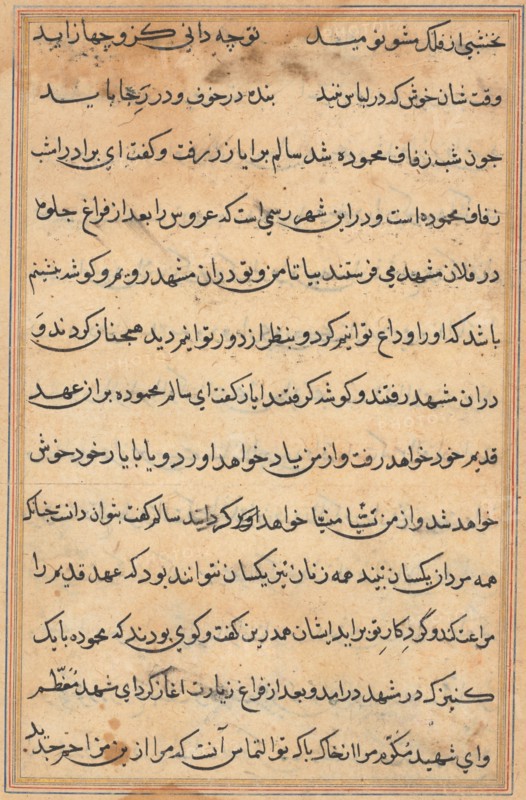 نخشبی از فلک مشو نومید تو چه دانی کزو چها زاید
وقت شان خوش که در لباس نیند بنده در خوف و در رجا باید
چون شب زفاف محموده شد سالم برایاز رفت و گفت ای برادر امشب
زفاف محموده است و در این شهر رسمی است که عروس را بعد از فراغ جلوه
در فلان مشهد می فرستند بیا تا من و تو در ان مشهد رویم و گوشه بنشینم
باشد که او را وداع توانیم کرد و بنظر از دور توانیم دید همچنان کردند و
دران مشهد رفتند و گوشه گرفتند ایاز گفت ای سالم محموده بران عهد
قدیم خود خواهد رفت و از من یاد خواهد اورد و یا با یار خود خوش
خواهد شد و از من نسیا منسیا خواهد گردانید سالم گفت نتوان دانست چنانکه
همه مردان یکسان نیند همه زنان نیز یکسان نتوانند بود که عهد قدیم را
مراعت کند و گرد کار تو براید ایشان همدرین گفت و گوی بودند که محموده با یک
کنیزک در مشهد درامد و بعد از فراغ زیارت اغاز کرد ای شهید معظم
وای شهید مکرم مرا از خاک پاک تو التماس آنست که مرا از بن مزاحم جدید